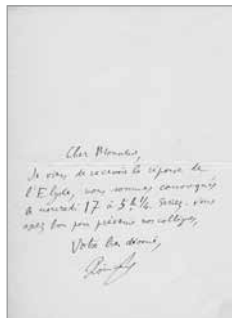 Cher Monsieur,
Je viens de recevoir la réponse de
l'Elysée, nous sommes convoqués
le mercredi 17 à 3h ¼. Seriez-vous
assez bon pour prévenir nos collègues,
Votre bien dévoué,